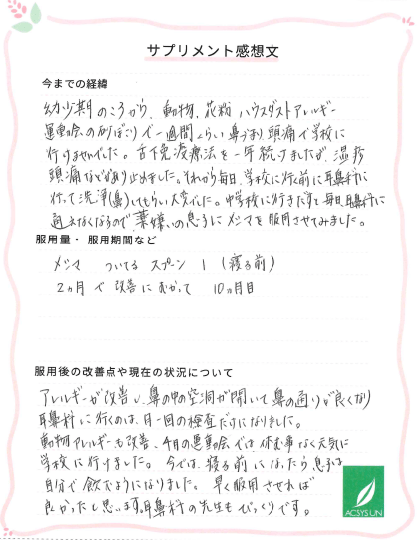 サプリメント感想文
今までの経緯
幼少期のころから、動物、花粉、ハウスダストアレルギー
運動会の砂ぼこりで一週間くらい鼻づまり頭痛で学校に
行けませんでした。舌下免疫療法を一年続けましたが、湿疹
頭痛などがあり止めました。それから毎日、学校に行く前に耳鼻科に
行って洗浄(鼻)してもらい大変でした。中学校に行きだすと毎日、耳鼻科に
通えなくなるので薬嫌いの息子にメシマを服用させてみました。
服用量・服用期間など
メシマ ついてる スプーン 1 (寝る前)
2ヵ月で改善にむかって 10ヵ月目
服用後の改善点や現在の状況について
アレルギーが改善し、鼻の中の空洞が開いて鼻の通りが良くなり
耳鼻科に行くのは、月一回の検査だけになりました。
動物アレルギーも改善、4月の運動会では休む事なく元気に
学校に行けました。今では、寝る前になったら息子は
自分で飲むようになりました。早く服用させれば
良かったと思います。耳鼻科の先生もびっくりです。
ACSYSUN